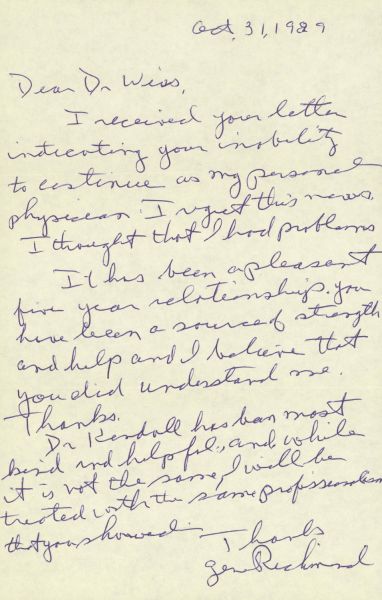 Oct, 31, 1989
Dear Dr Weiss,
I received your letter
indicating your inability
to continue as my personal
physician. I regret this news.
I thought that I had problems
It has been a pleasant
five year relationship. You
have been a source of strength
and help and I believe that
you did understand me.
Thanks.
Dr Kendall has been most
kind and helpful, and while
it is not the same, I will be
treated with the same professionalism
that you showed.
Thanks
Gene Richmond